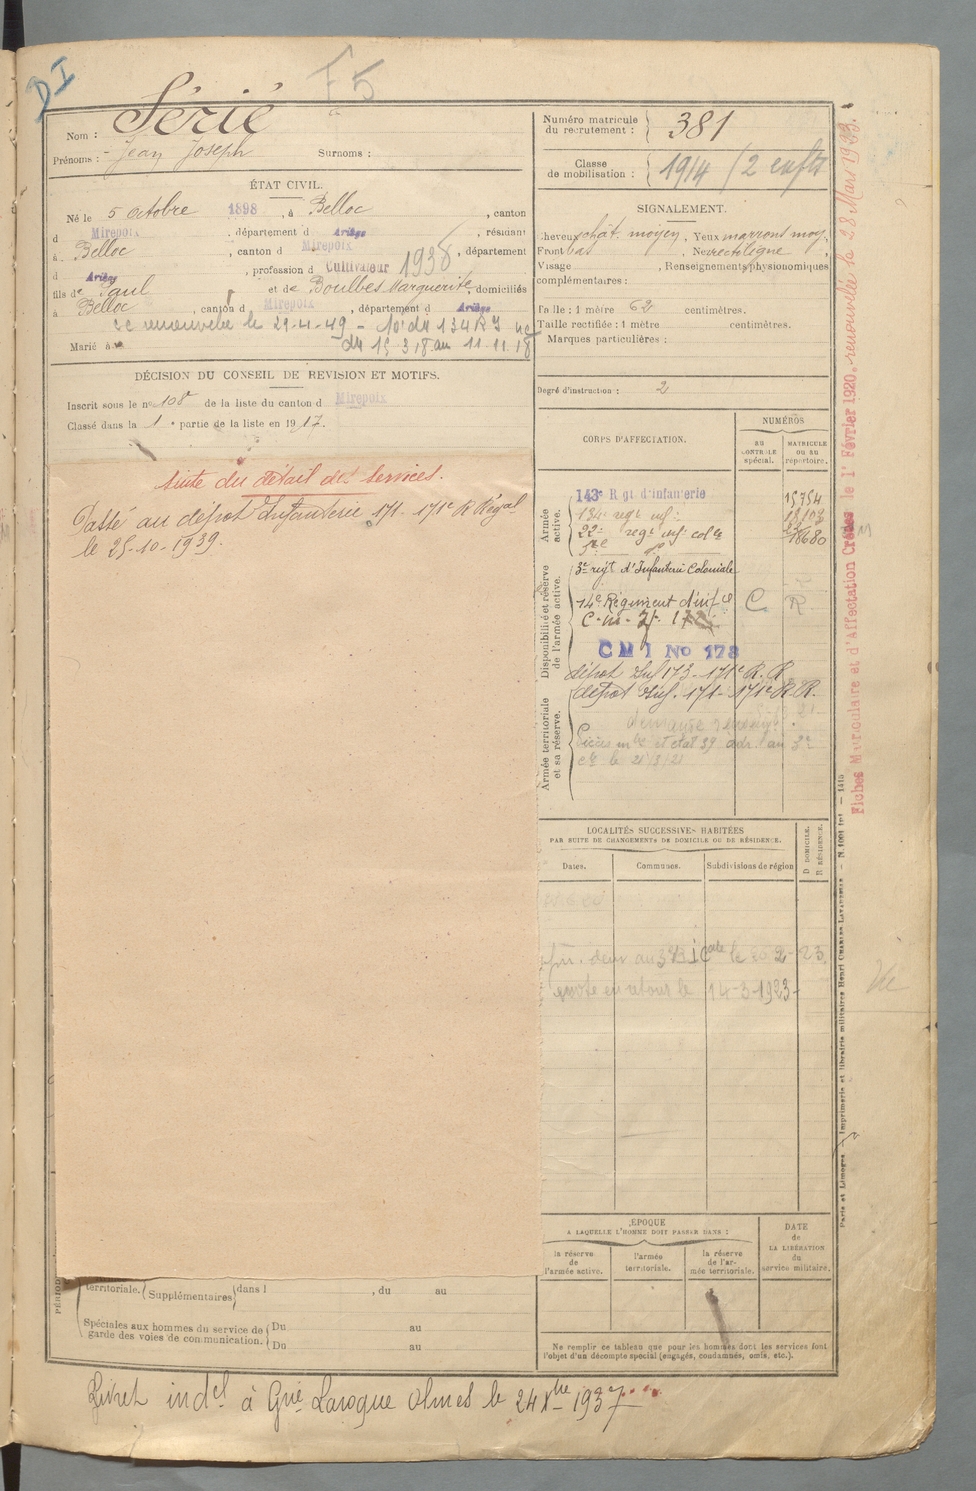 DI
F5
Nom : Sérié
Prénoms : Jean Joseph Surnoms :
ÉTAT CIVIL.
Né le 5 octobre 1898, à Belloc, canton
d Mirepoix, département d Ariège, résidant
à Belloc, canton d Mirepoix, département
d Ariège, profession d Cultivateur 1938
fils de Paul et de Boulbès Marguerite, domiciliés
à Belloc, canton d Mirepoix, département d Ariège
le 29-4-49 - 10° du 134 R I
du 15-3-18 au 11-11-18
Marié à
DÉCISION DU CONSEIL DE REVISION ET MOTIFS.
Inscrit sous le n° 108 de la liste du canton d Mirepoix
Classé dans la 1e partie de la liste en 1917.
Suite du détail des services.
Passé au dépôt Infanterie 171 - 171e R Régal
le 25-10-1939.
territoriale. Supplémentaires dans l , du au
Spéciales aux hommes du service de garde des voies de communication. Du au
Du au
Numéro matricule du recrutement : 381
Classe de mobilisation : 1914 / 2 enfts
SIGNALEMENT.
Cheveux chât. moyen, Yeux marrons moy.,
Front bas, Nez rectiligne,
Visage , Renseignements physionomiques
complémentaires :
Taille : 1 mètre 62 centimètres.
Taille rectifiée : 1 mètre centimètres.
Marques particulières :
Degré d'instruction : 2
CORPS D'AFFECTATION.
NUMÉROS
AU CONTRÔLE spécial.
MATRICULE OU AU répertoire.
Armée active.
143e Rgt d'infanterie 15754
134e regt inf.
22e regt inf colle
18680
Disponibilité et réserve de l'armée active.
3e rejt d'Infanterie Coloniale
14e Régiment d'infie C R
C.M.I. 172
C M I No 173
dépôt Inf 173 - 171e R.R
dépôt Inf. 171 - 171e R.R.
Armée territoriale et sa réserve.
le 21/3/21
LOCALITÉS SUCCESSIVES HABITÉES
PAR SUITE DE CHANGEMENTS DE DOMICILE OU DE RÉSIDENCE.
D DOMICILE.
R RÉSIDENCE.
Dates. Communes. Subdivisions de région
au 3e R.I.Cale le 26-2-23
en retour le 14-3-1923-
ÉPOQUE
A LAQUELLE L'HOMME DOIT PASSER DANS :
DATE de LA LIBÉRATION du service militaire.
la réserve de l'armée active.
l'armée territoriale.
la réserve de l'armée territoriale.
Ne remplir ce tableau que pour les hommes dont les services font
l'objet d'un décompte spécial (engagés, condamnés, omis, etc.).
Livret indel à Gie Laroque Olmes le 24 Xbre 1937
Fiches Matriculaire et d'Affectation Créées le 1er Février 1920. renouvelée le 28 Mars 1933.
Paris et Limoges. — Imprimerie et librairie militaires Henri CHARLES-LAVAUZELLE
Vu